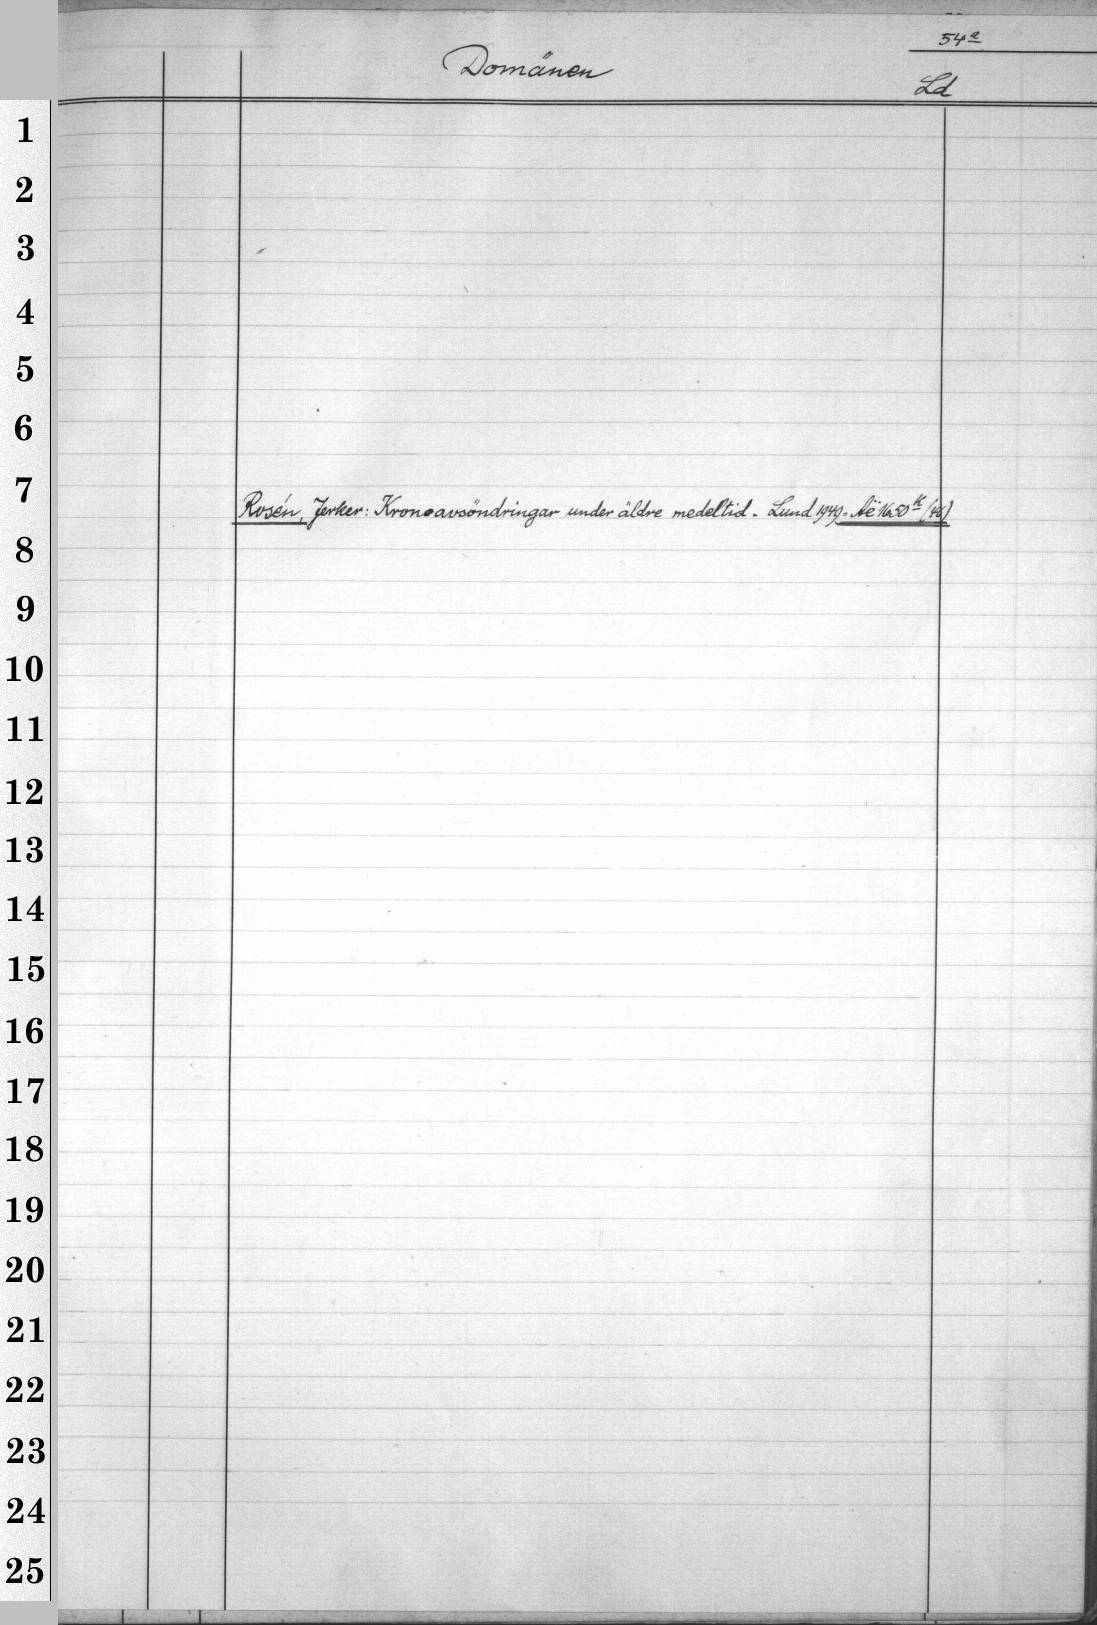 54a
Domänen
Ld
1
2
3
4
5
6
7
Rosén, Jerker: Kronoavsöndringar under äldre medeltid. Lund 1949 =
8
9
10
11
12
13
14
15
16
17
18
19
20
21
22
23
24
25